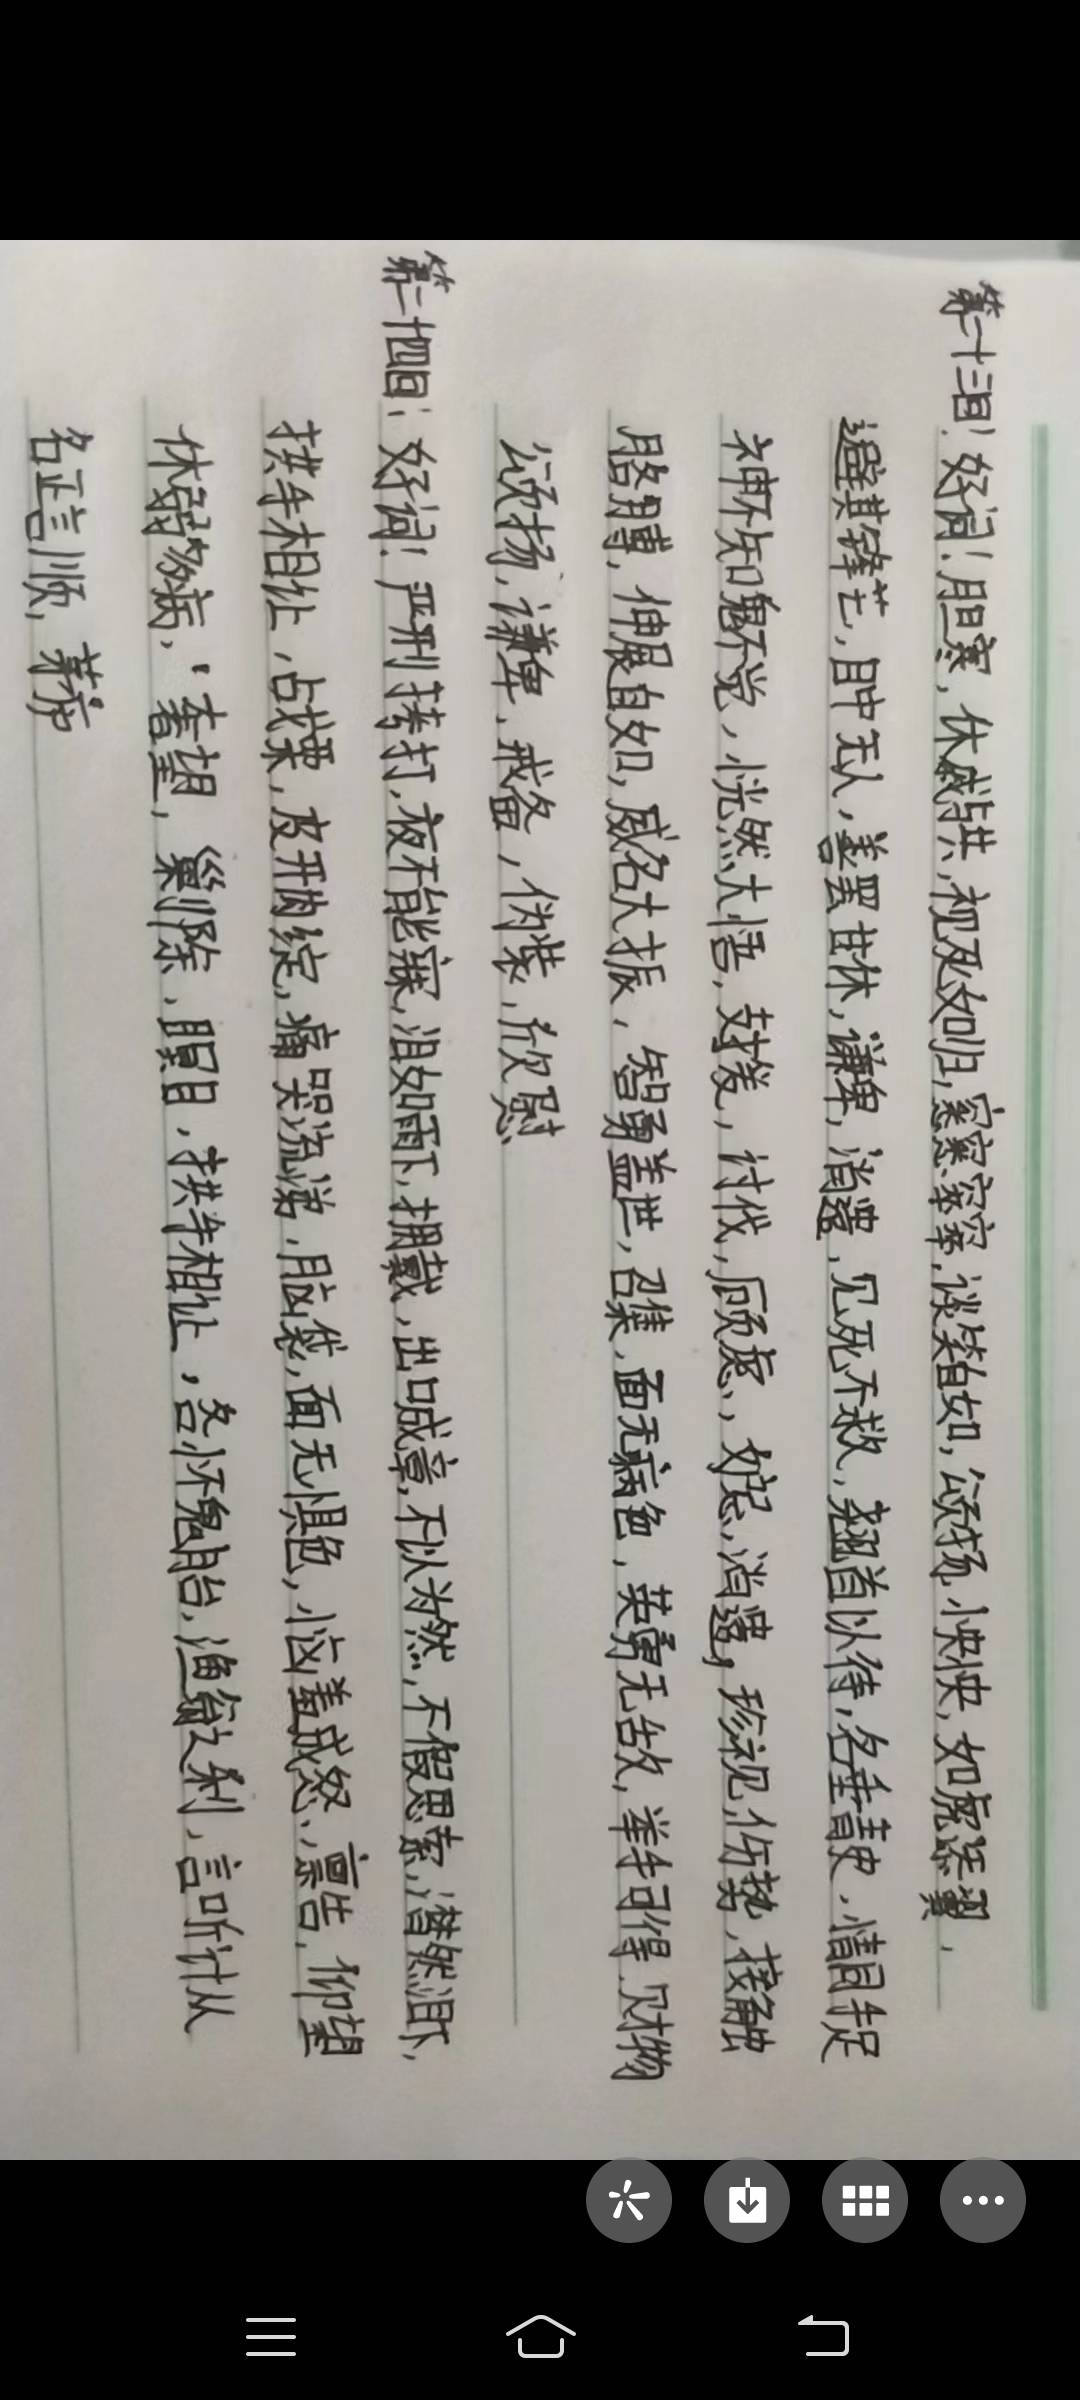 第一十三回：好词：胆寒，休戚与共，视死如归，窸窸窣窣，谈笑自如，颂扬，怏怏，如虎添翼，
避其锋芒，目中无人，善罢甘休，谦卑，消遣，见死不救，翘首以待，名垂青史，情同手足
神不知鬼不觉，恍然大悟，支援，讨伐，顾虑，妒忌，消遣，珍视，伤势，接触
胳膊，伸展自如，威名大振，智勇盖世，召集，面无病色，英勇无敌，举手可得，财物
颂扬，谦卑，戒备，伪装，欣慰
第二十四回：好词：严刑拷打，夜不能寐，泪如雨下，拥戴，出口成章，不以为然，不假思索，潸然泪下，
拱手相让，占卜，皮开肉绽，痛哭流涕，脑袋，面无惧色，恼羞成怒，禀告，仰望
体弱多病，看望，剿除，瞑目，拱手相让，各怀鬼胎，渔翁之利，言听计从
名正言顺，茅庐